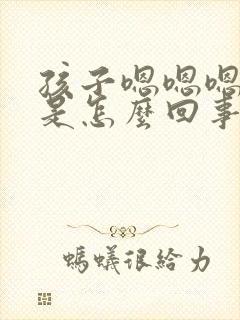 孩子嗯嗯嗯
是怎麼回事
螞蟻很給力